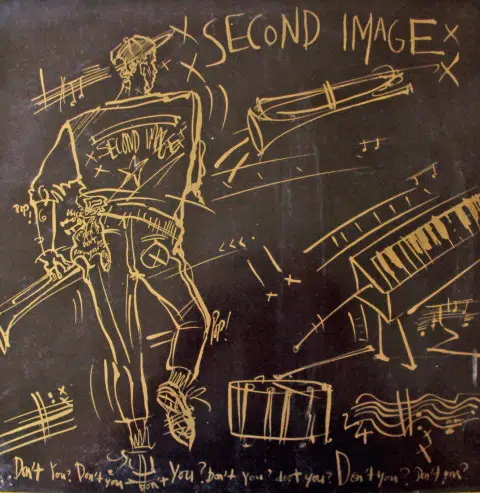 SECOND IMAGE
SECOND IMAGE
POP!
Don't You? Don't you don't You? Don't you? don't you? Don't you? Don't you?